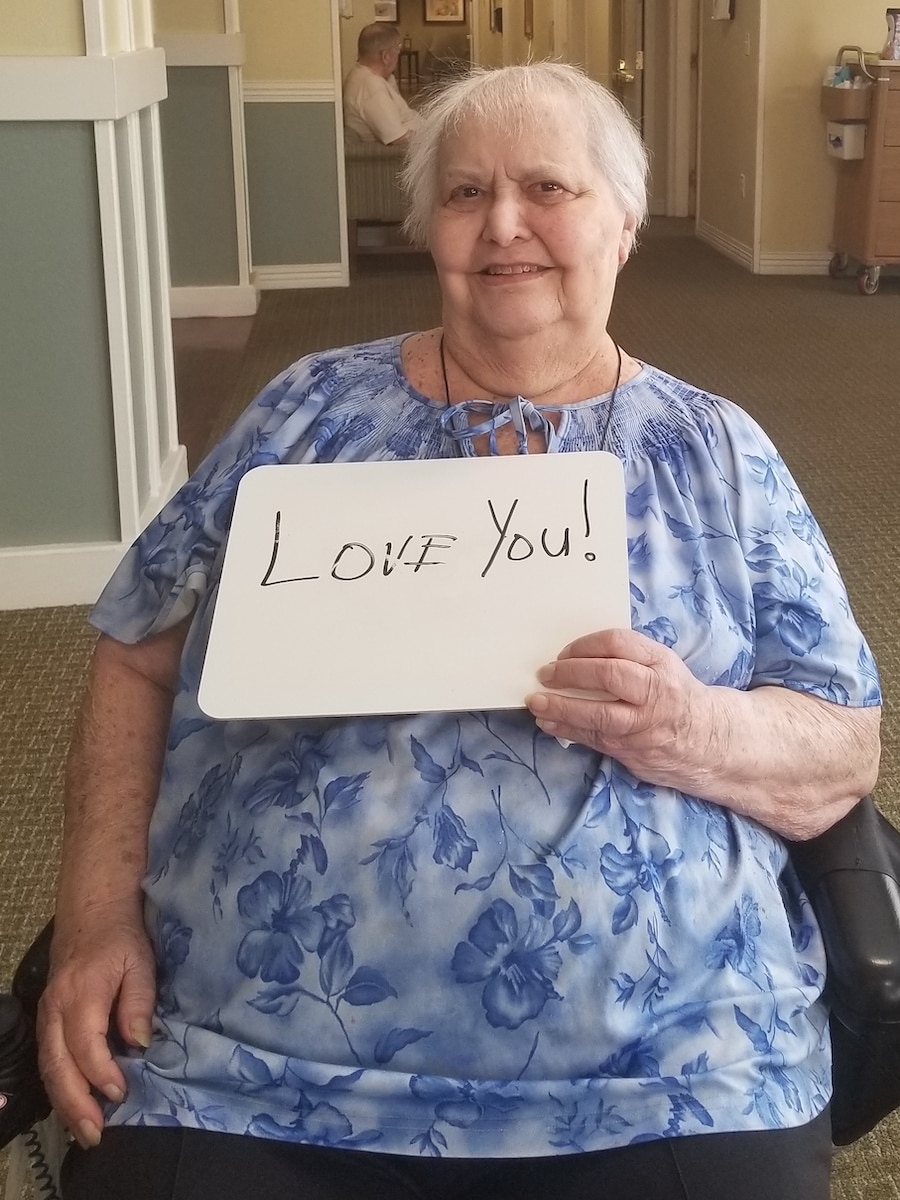 LOVE You!